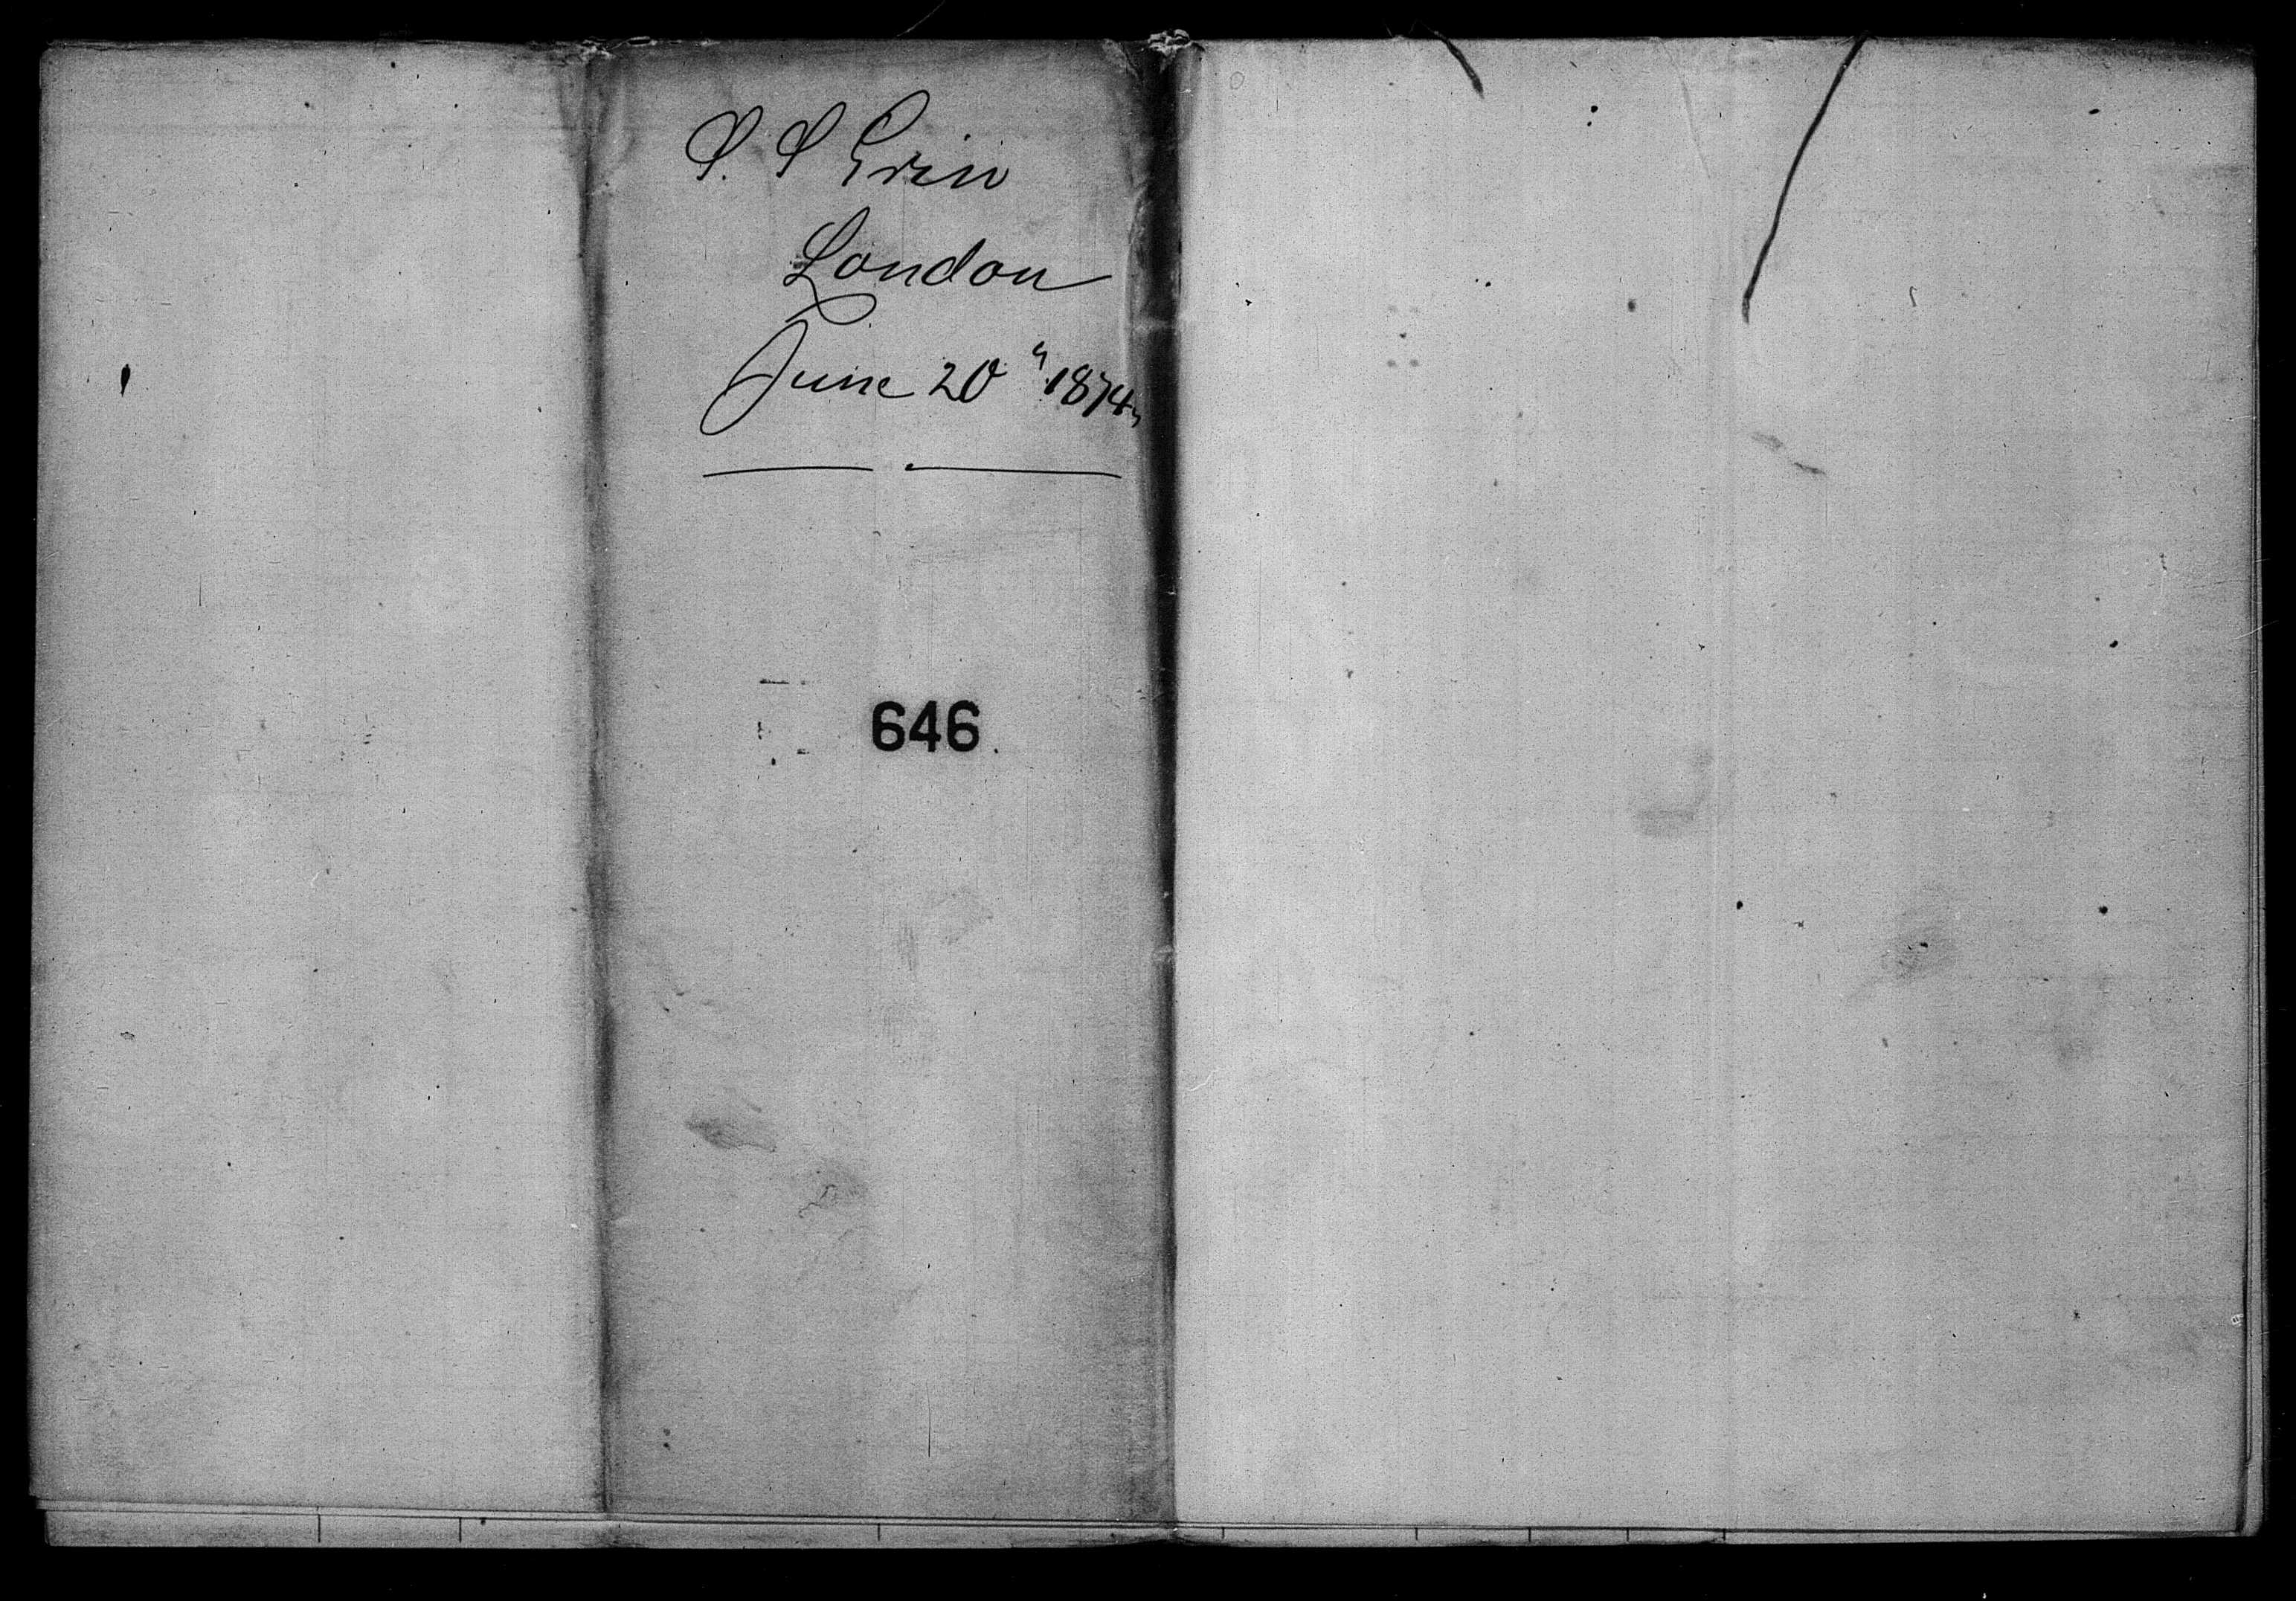 S. S Erin
London
June 20" 1874
646